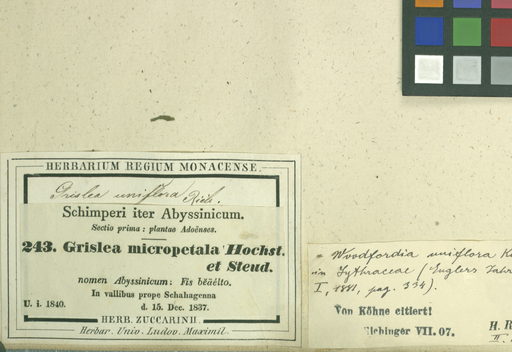 HERBARIUM REGIUM MONACENSE.
Grislea uniflora Rich.
Schimperi iter Abyssinicum.
Sectio prima: plantae Adoënses.
243. Grislea micropetala Hochst.
et Steud.
nomen Abyssinicum: Fis bëäëlto.
In vallibus prope Schahagenna
U. i. 1840.
d. 15. Dec. 1837.
HERB. ZUCCARINII.
Herbar. Univ. Ludov. Maximil.
Woodfordia uniflora
in Lythraceae (Englers Jahr
I, 1881, pag. 334).
Von Köhne citiert!
Eichinger VII. 07.
H.
II.